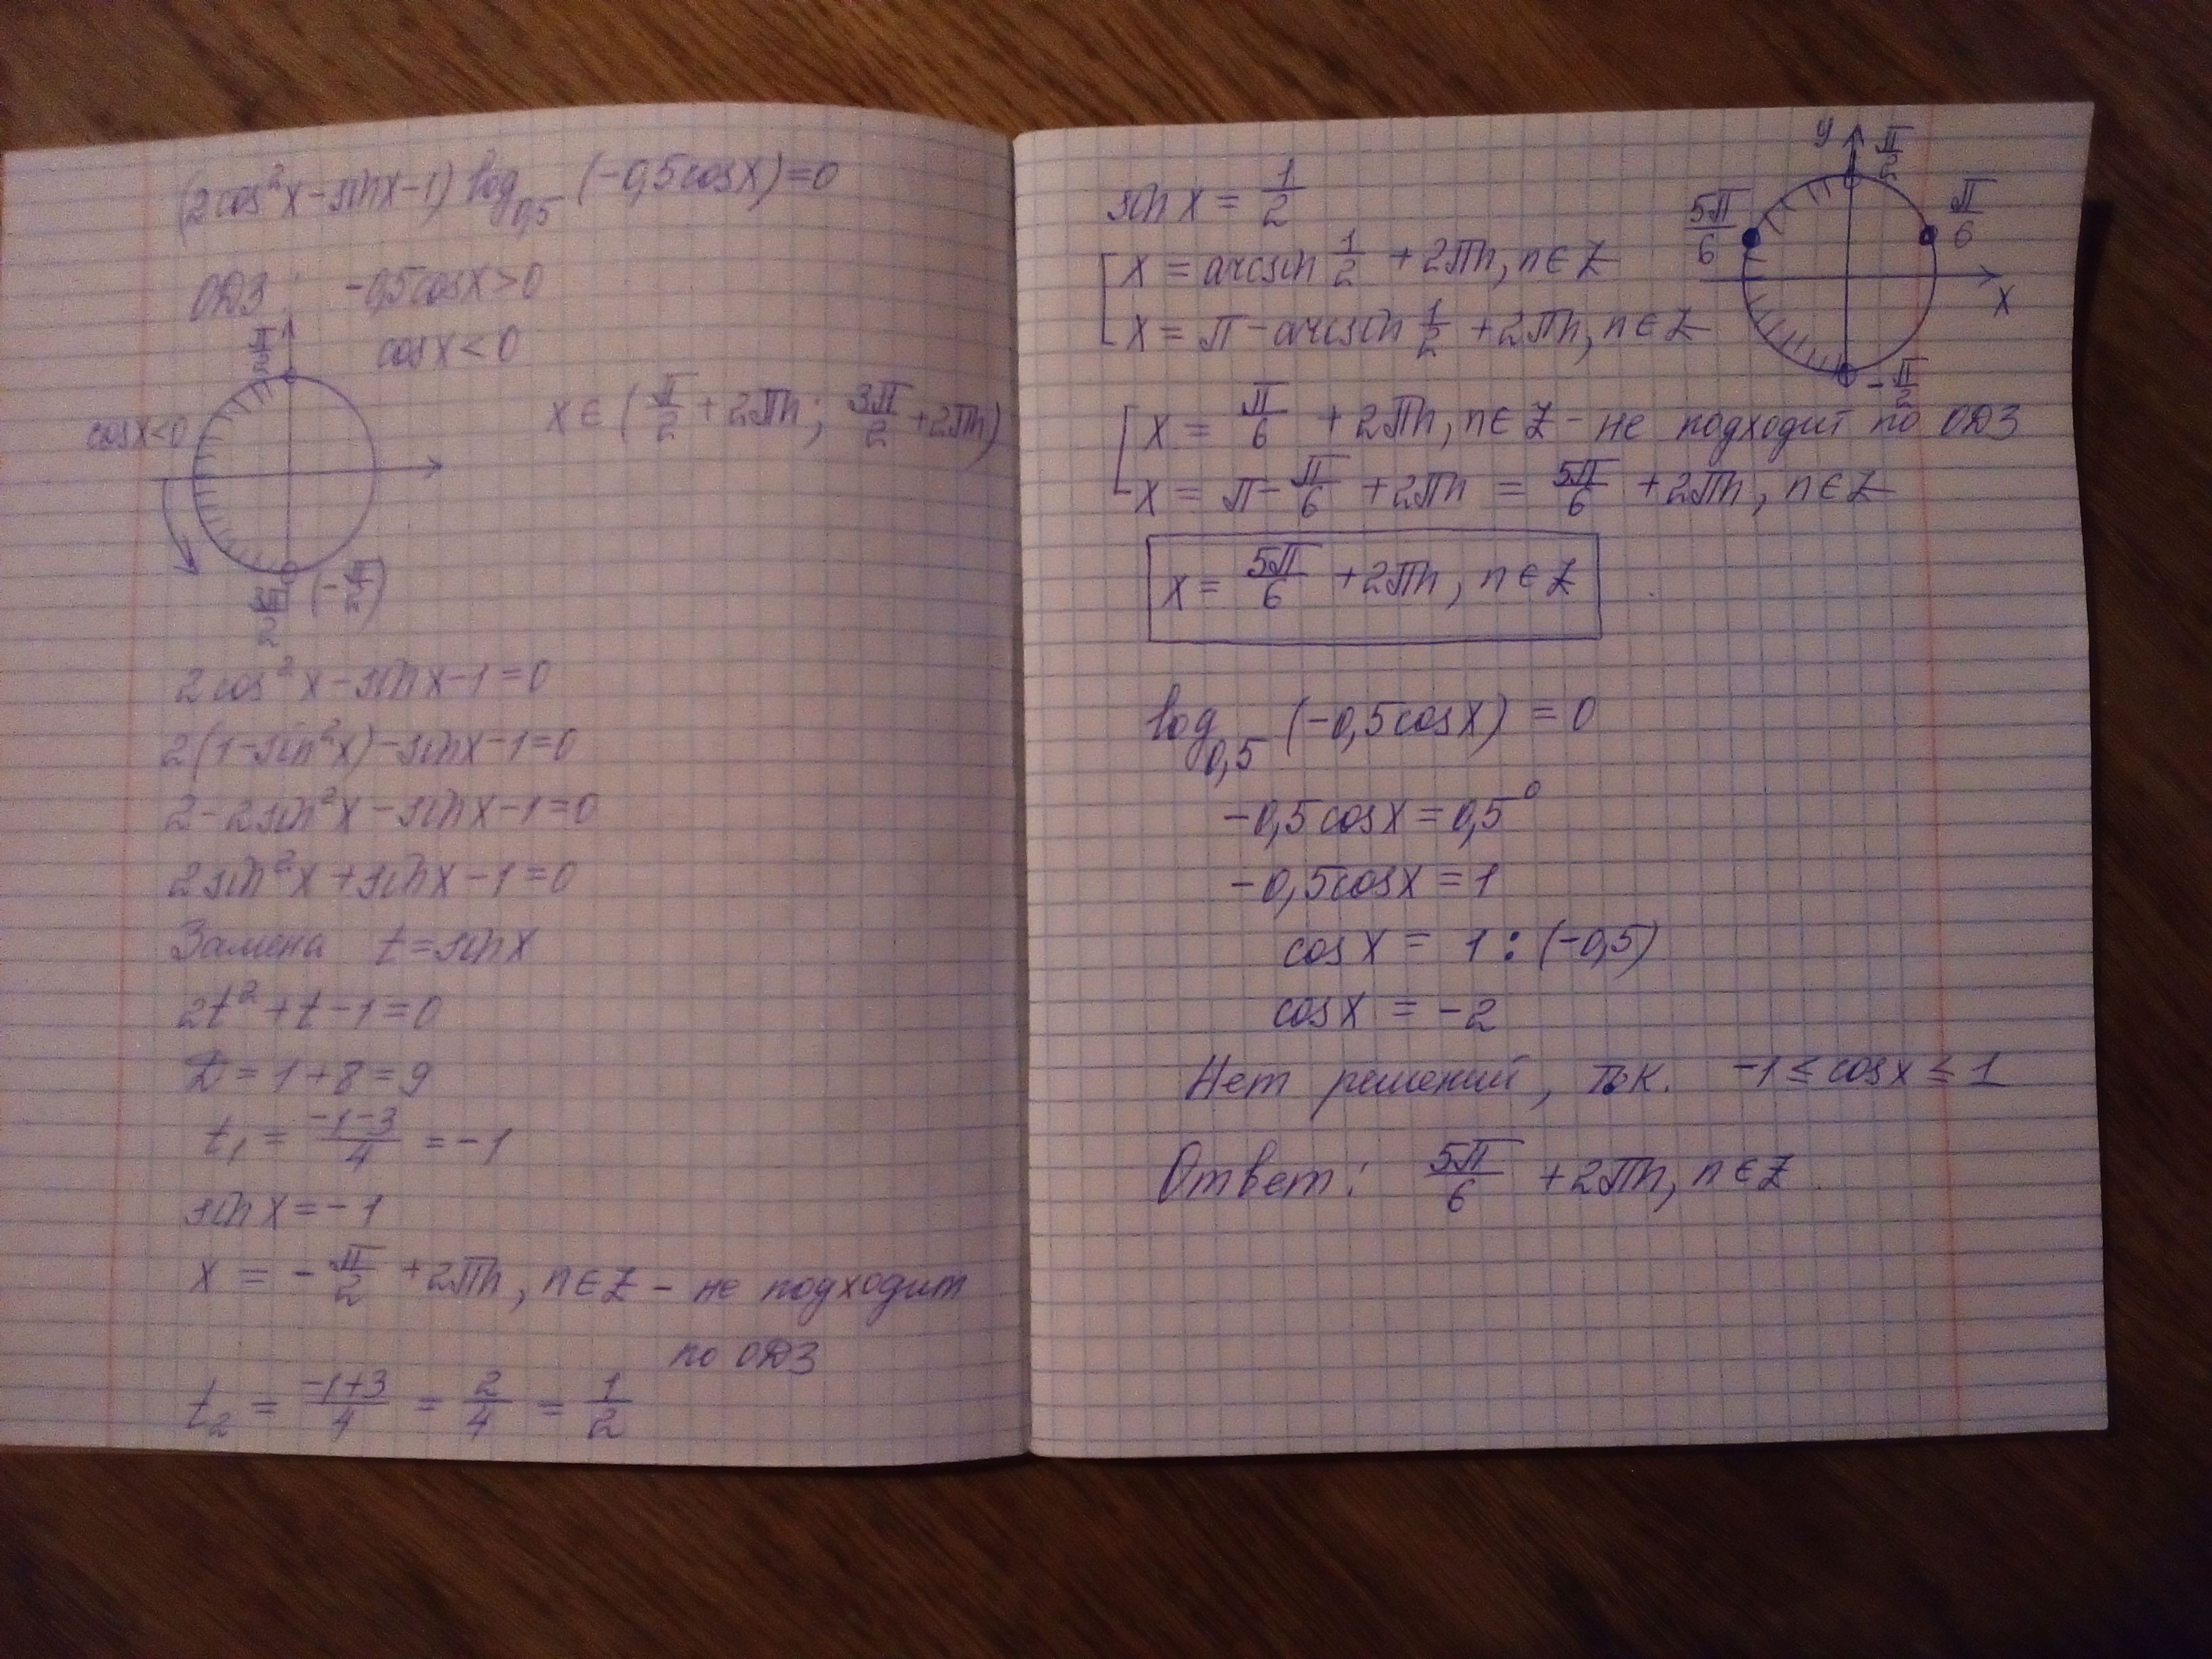 (2cos²x-sinx-1) log₀,₅ (-0,5cosx)=0
ОДЗ: -0,5cosx>0
cosx<0
π/2
cosx<0
x∈(π/2+2πn; 3π/2+2πn)
3π/2 (-π/2)
2cos²x-sinx-1=0
2(1-sin²x)-sinx-1=0
2-2sin²x-sinx-1=0
2sin²x+sinx-1=0
Замена t=sinx
2t²+t-1=0
D=1+8=9
t₁=(-1-3)/4=-1
sinx=-1
x=-π/2+2πn, n∈Z - не подходит
по ОДЗ
t₂=(-1+3)/4=2/4=1/2
sinx=1/2
x=arcsin 1/2+2πn, n∈Z
x=π-arcsin 1/2+2πn, n∈Z
y
π/2
5π/6
π/6
x
-π/2
x=π/6+2πn, n∈Z - не подходит по ОДЗ
x=π-π/6+2πn=5π/6+2πn, n∈Z
x=5π/6+2πn, n∈Z
log₀,₅ (-0,5cosx)=0
-0,5cosx=0,5⁰
-0,5cosx=1
cosx=1:(-0,5)
cosx=-2
Нет решений, т.к. -1≤cosx≤1
Ответ: 5π/6+2πn, n∈Z.